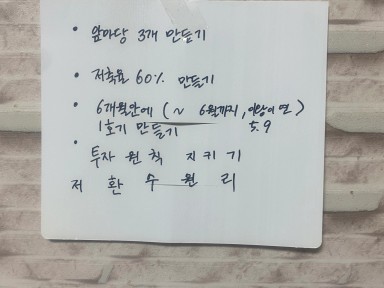 • 앞마당 3개 만들기
• 저축률 60% 만들기
• 6개월안에 (~ 6월까지, 이왕이면)
1호기 만들기 5.9
• 투자 원칙 지키기
저 환 수 원 리